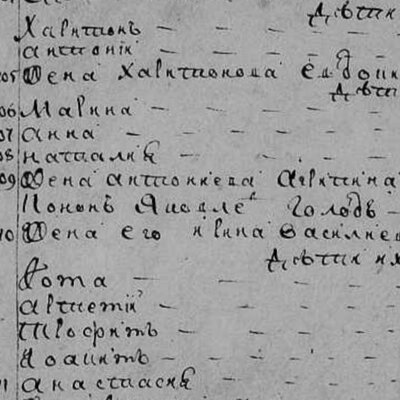 Дѣти
Харитонъ
Антоній
05 Жена Харитонова Евдоки
Дѣти
06 Марина
07 Анна
08 Наталиѧ
09 Жена Антониева Агрипина
Пононъ Яковле Голобъ
10 Жена его Ирина Василиев
Дѣти их
Фота
Артистій
Трофимъ
Иоакимъ
11 Анастасиѧ